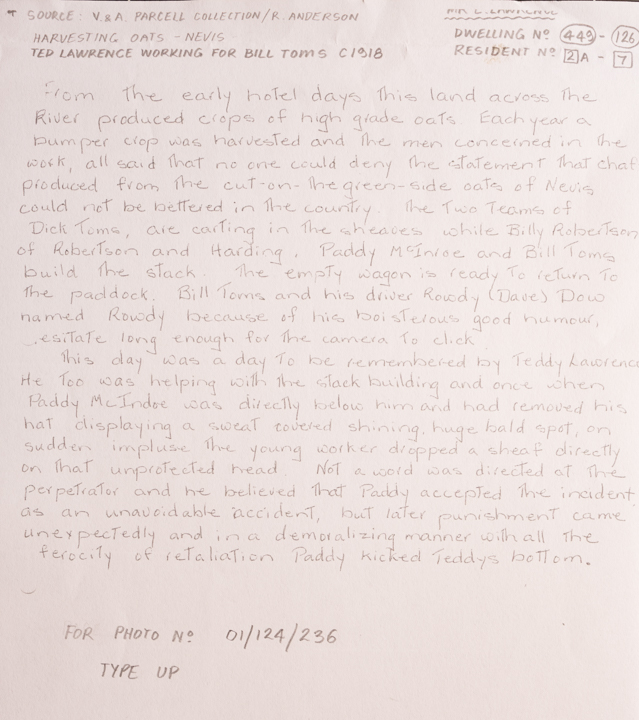 SOURCE: V. & A. PARCELL COLLECTION/R. ANDERSON
HARVESTING OATS - NEVIS
TED LAWRENCE WORKING FOR BILL TOMS C1918
MR L. LAWRENCE
DWELLING Nº 449 - 126
RESIDENT Nº 2A - 7
From the early hotel days this land across the
River produced crops of high grade oats. Each year a
bumper crop was harvested and the men concerned in the
work, all said that no one could deny the statement that chaf
produced from the cut-on-the green-side oats of Nevis
could not be bettered in the country. The Two Teams of
Dick Toms, are carting in the sheaves while Billy Robertson
of Robertson and Harding, Paddy McInroe and Bill Toms
build the stack. The empty wagon is ready to return to
the paddock. Bill Toms and his driver Rowdy (Dave) Dow
named Rowdy because of his boisterous good humour,
esitate long enough for the camera to click
This day was a day to be remembered by Teddy Lawrence
He too was helping with the stack building and once when
Paddy McIndoe was directly below him and had removed his
hat displaying a sweat covered shining, huge bald spot, on
sudden impluse the young worker dropped a sheaf directly
on that unprotected head. Not a word was directed at the
perpetrator and he believed that Paddy accepted the incident
as an unavoidable accident, but later punishment came
unexpectedly and in a demoralizing manner with all the
ferocity of retaliation Paddy kicked Teddys bottom.
FOR PHOTO Nº 01/124/236
TYPE UP